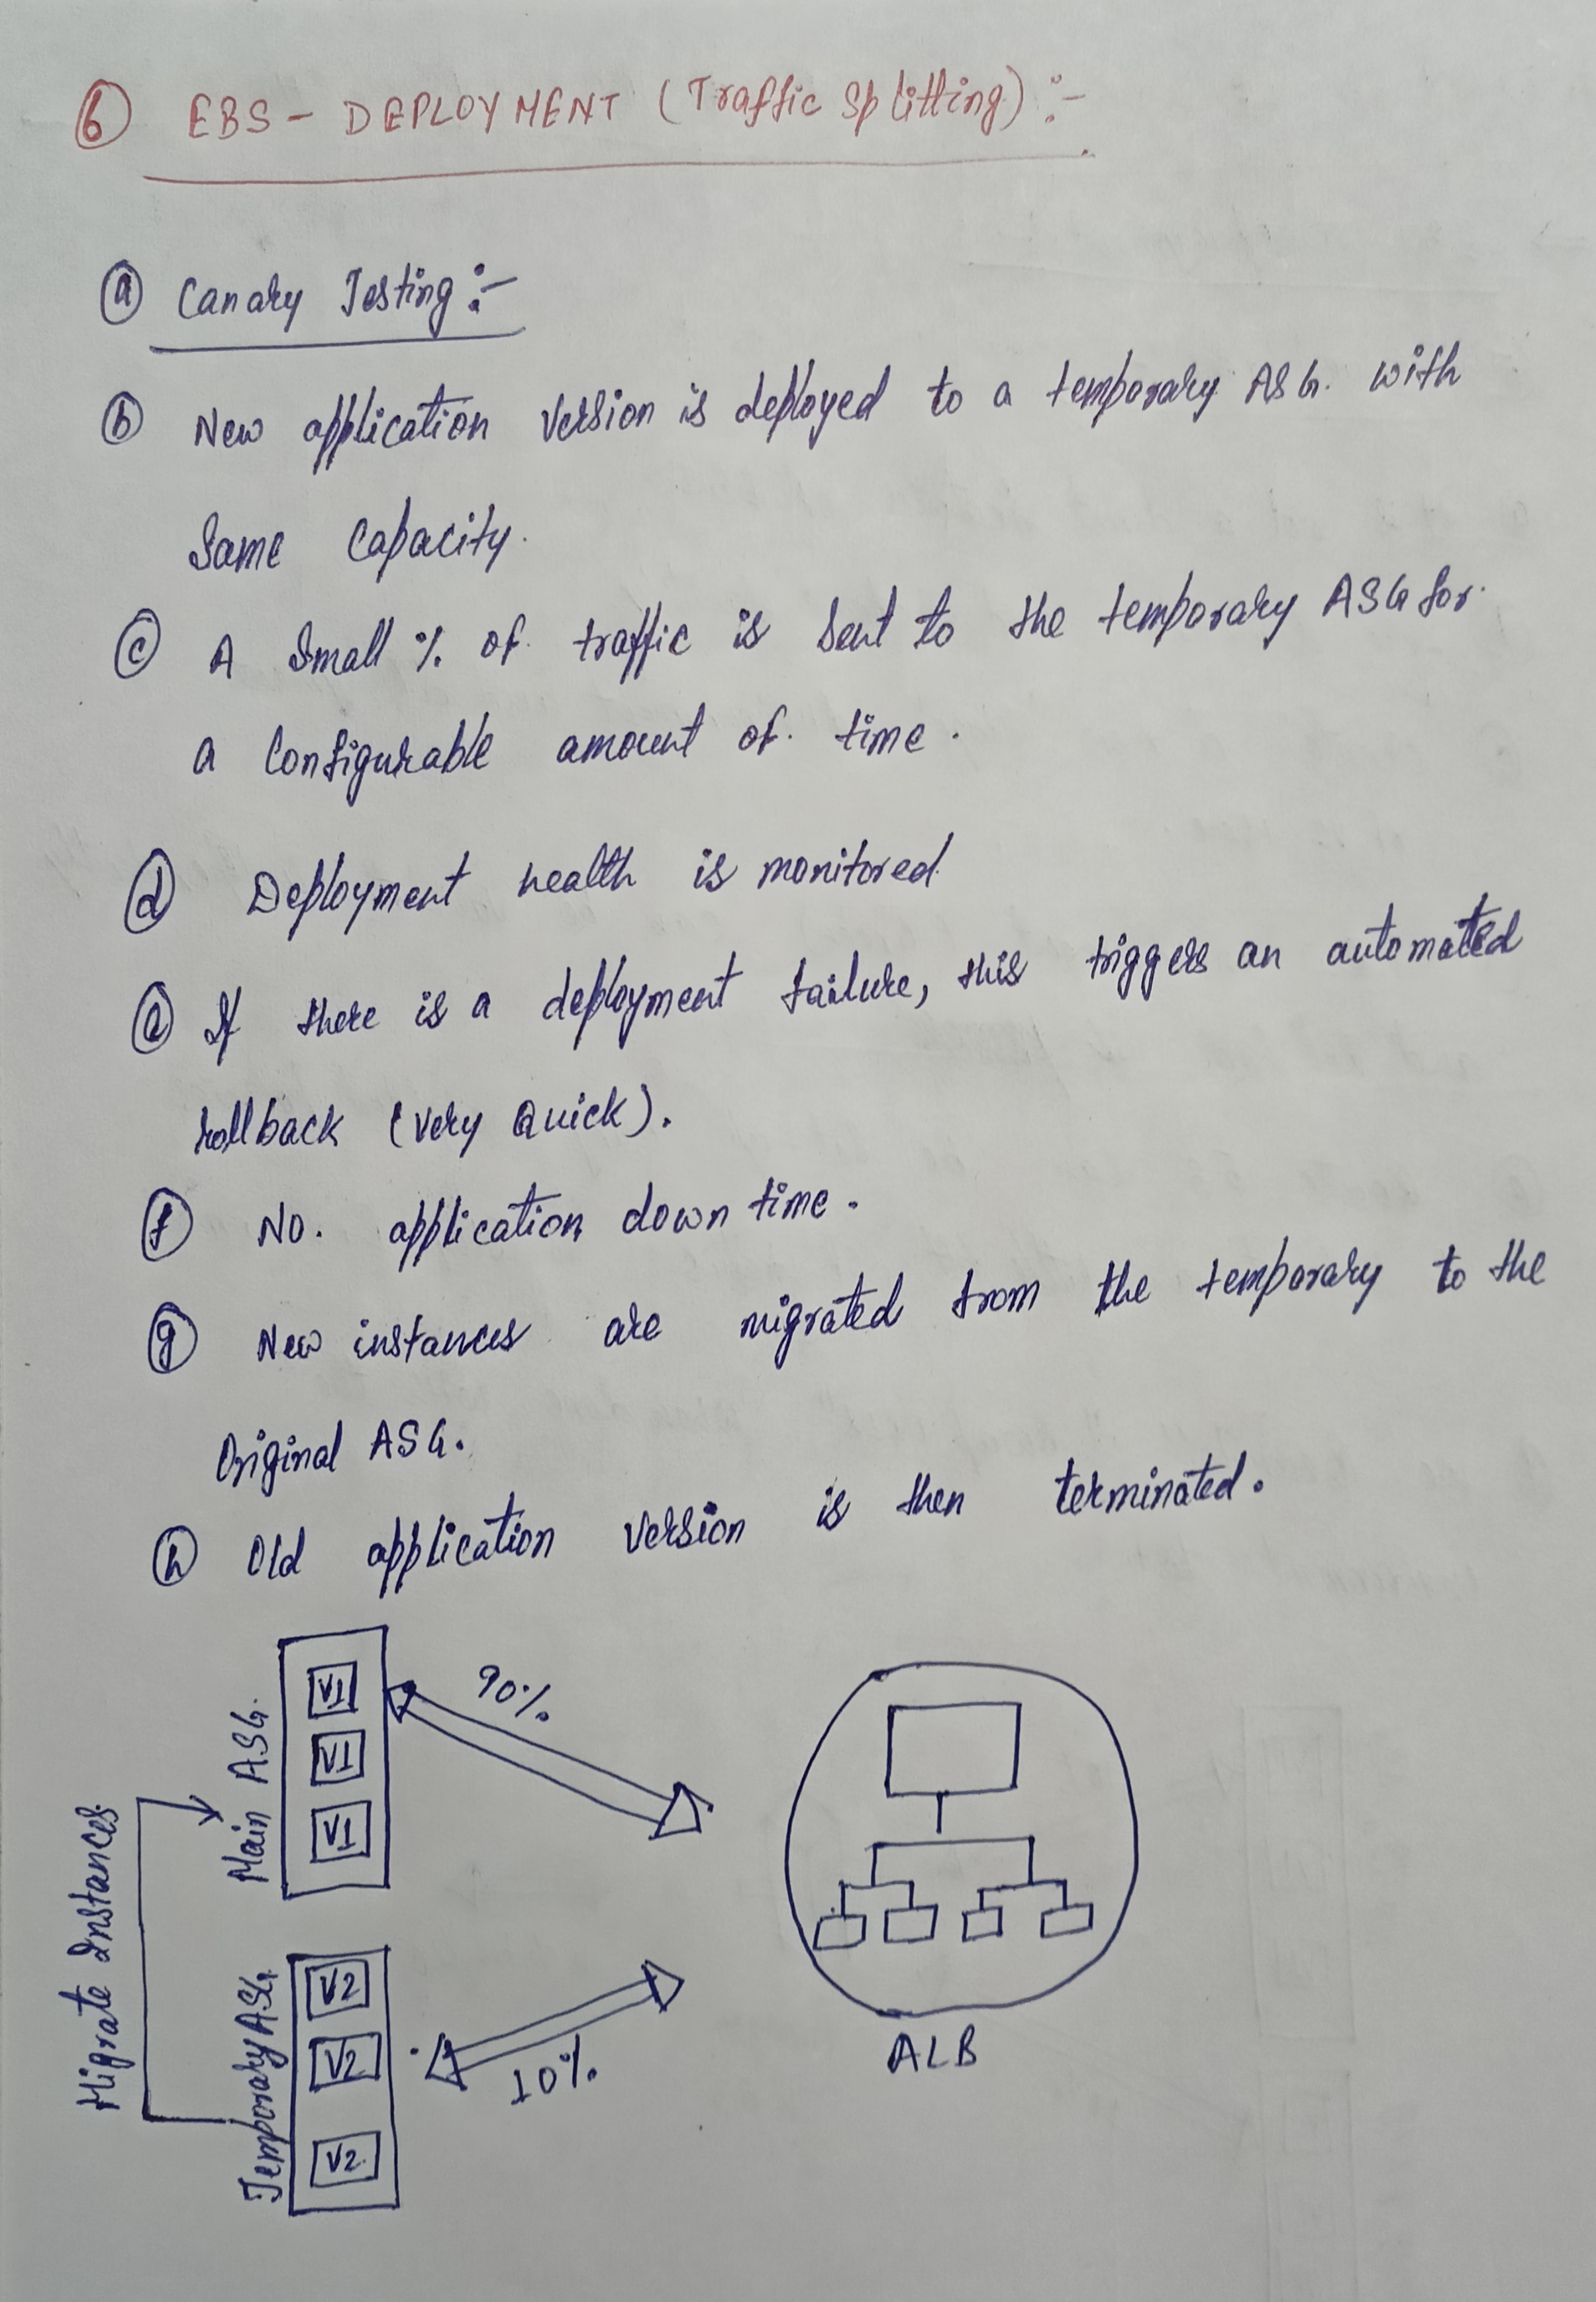 6 EBS - DEPLOYMENT (Traffic Splitting) :-
a Canary Testing :-
b New application version is deployed to a temporary ASG. with
Same Capacity.
c A Small % of traffic is sent to the temporary ASG for
a Configurable amount of time.
d Deployment health is monitored
e If there is a deployment failure, this triggers an automated
rollback (very Quick).
f No. application down time.
g New instances are migrated from the temporary to the
Original ASG.
h Old application version is then terminated.
Migrate Instances
Main ASG.
V1
V1
V1
90%
Temporary ASG
V2
V2
V2
10%
ALB